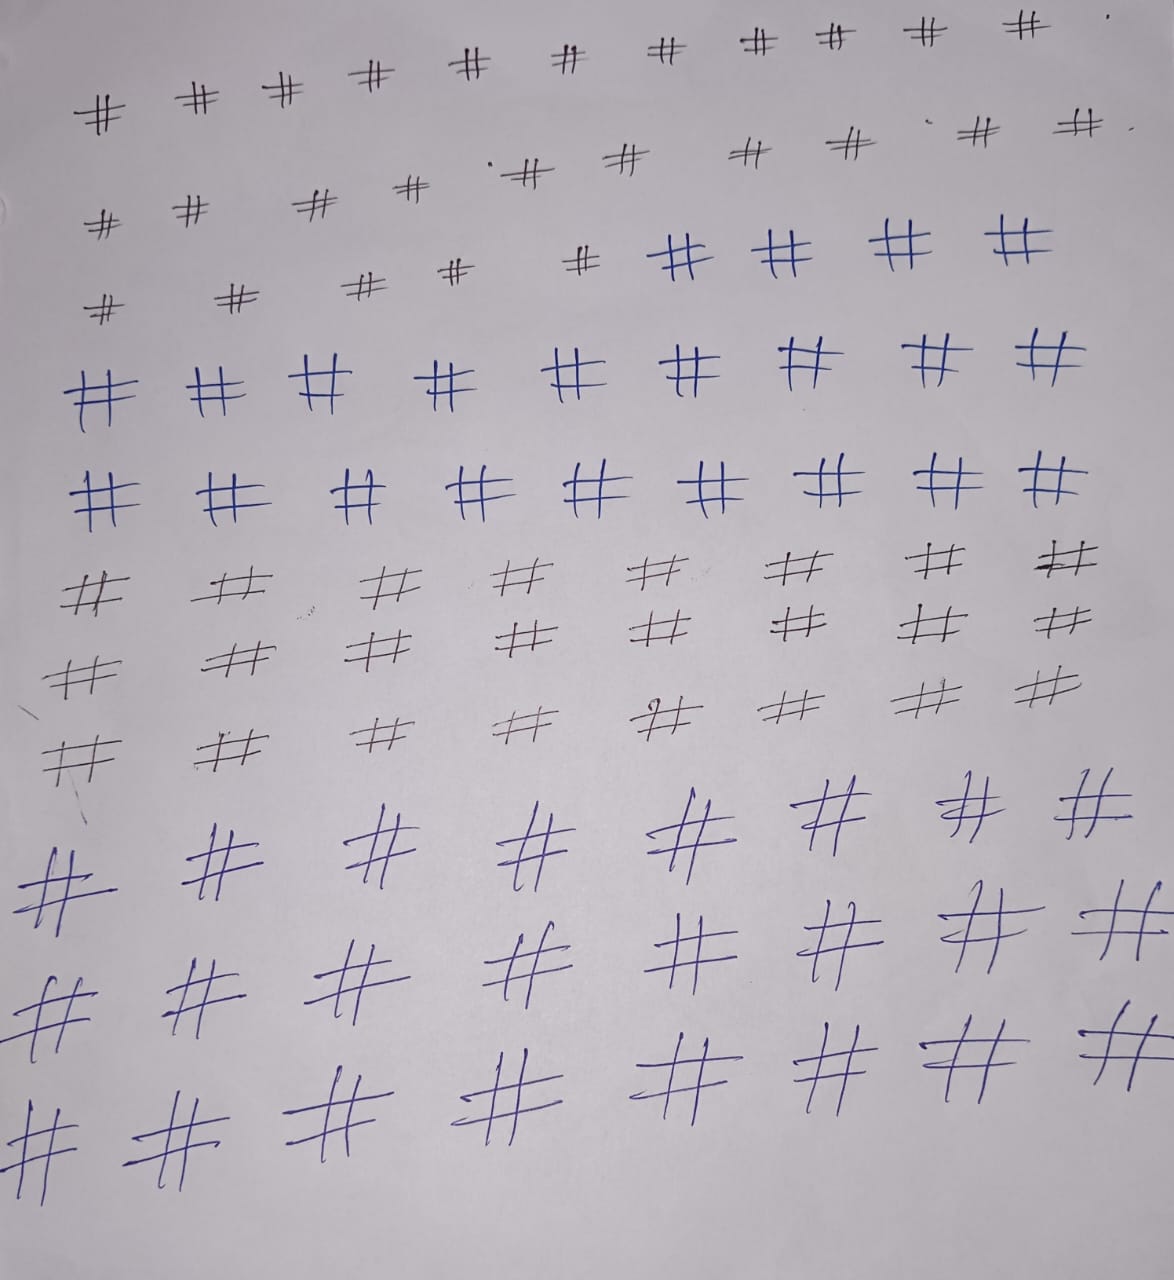 # # # # # # # # # # #
# # # # # # # # # #
# # # # # # # # #
# # # # # # # # #
# # # # # # # # #
# # # # # # # #
# # # # # # # #
# # # # # # # #
# # # # # # # #
# # # # # # # #
# # # # # # # #